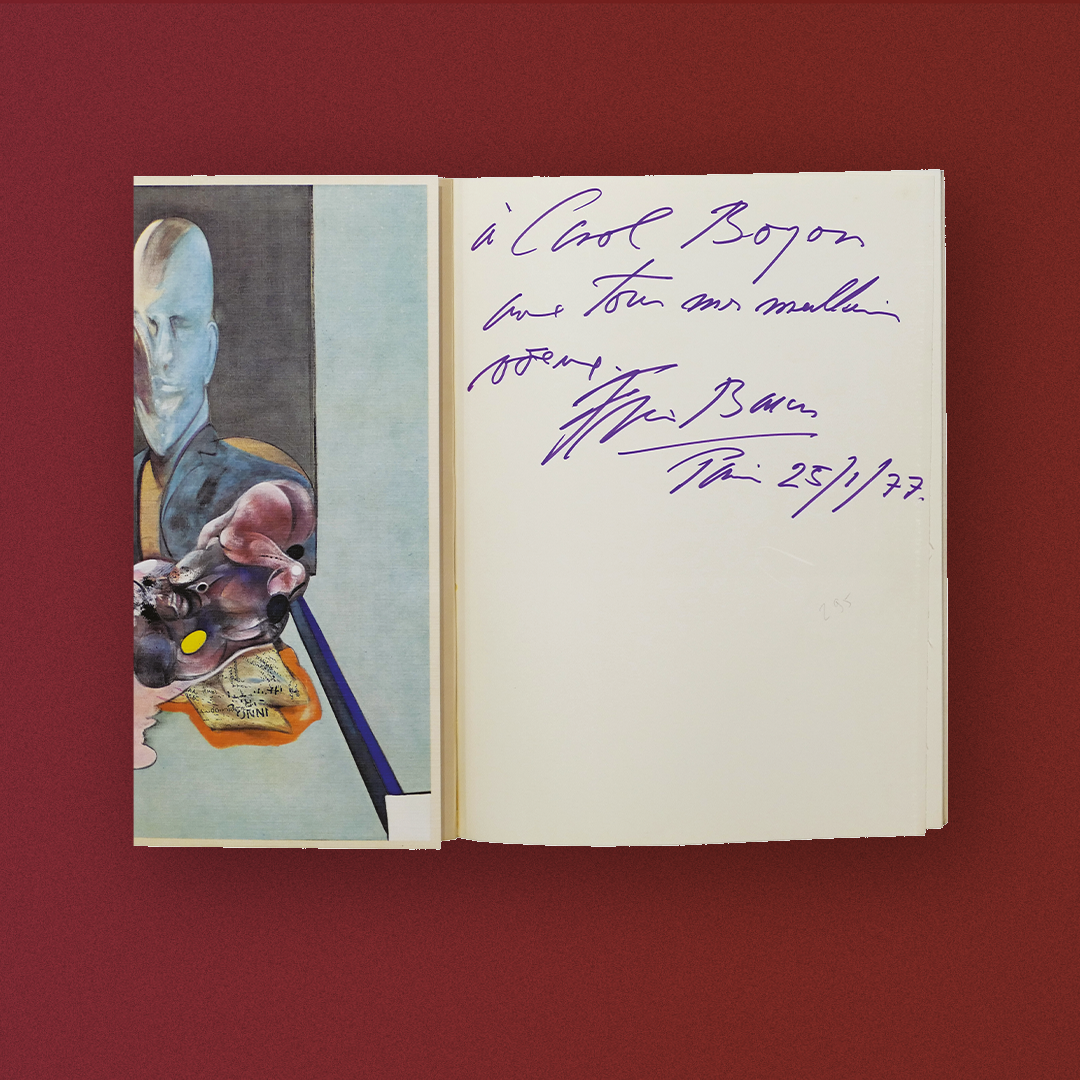 à Carol Boyon
avec tous mes meilleurs
vœux.
Francis Bacon
Paris 25/1/77.
295